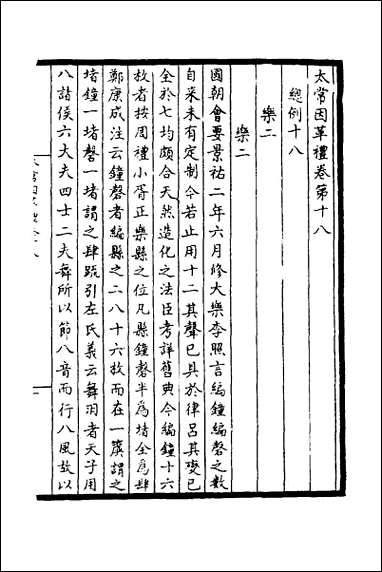 太常因革禮卷第十八
總例十八
樂二
樂二
國朝會要景祐二年六月修大樂李照言編鐘磬之數
自來未有定制今若止用十二其聲已具於律呂其變已
全於七均頗合天然造化之法臣考詳舊典今編鐘十六
枚者按周禮小胥正樂縣之位凡縣鐘磬半爲堵全爲肆
鄭康成注云鐘磬者編縣之二八十六枚而在一簴謂之
堵鐘一堵磬一堵謂之肆䟽引左氏義云舞羽者天子用
八諸侯六大夫四士二夫舞所以節八音而行八風故以